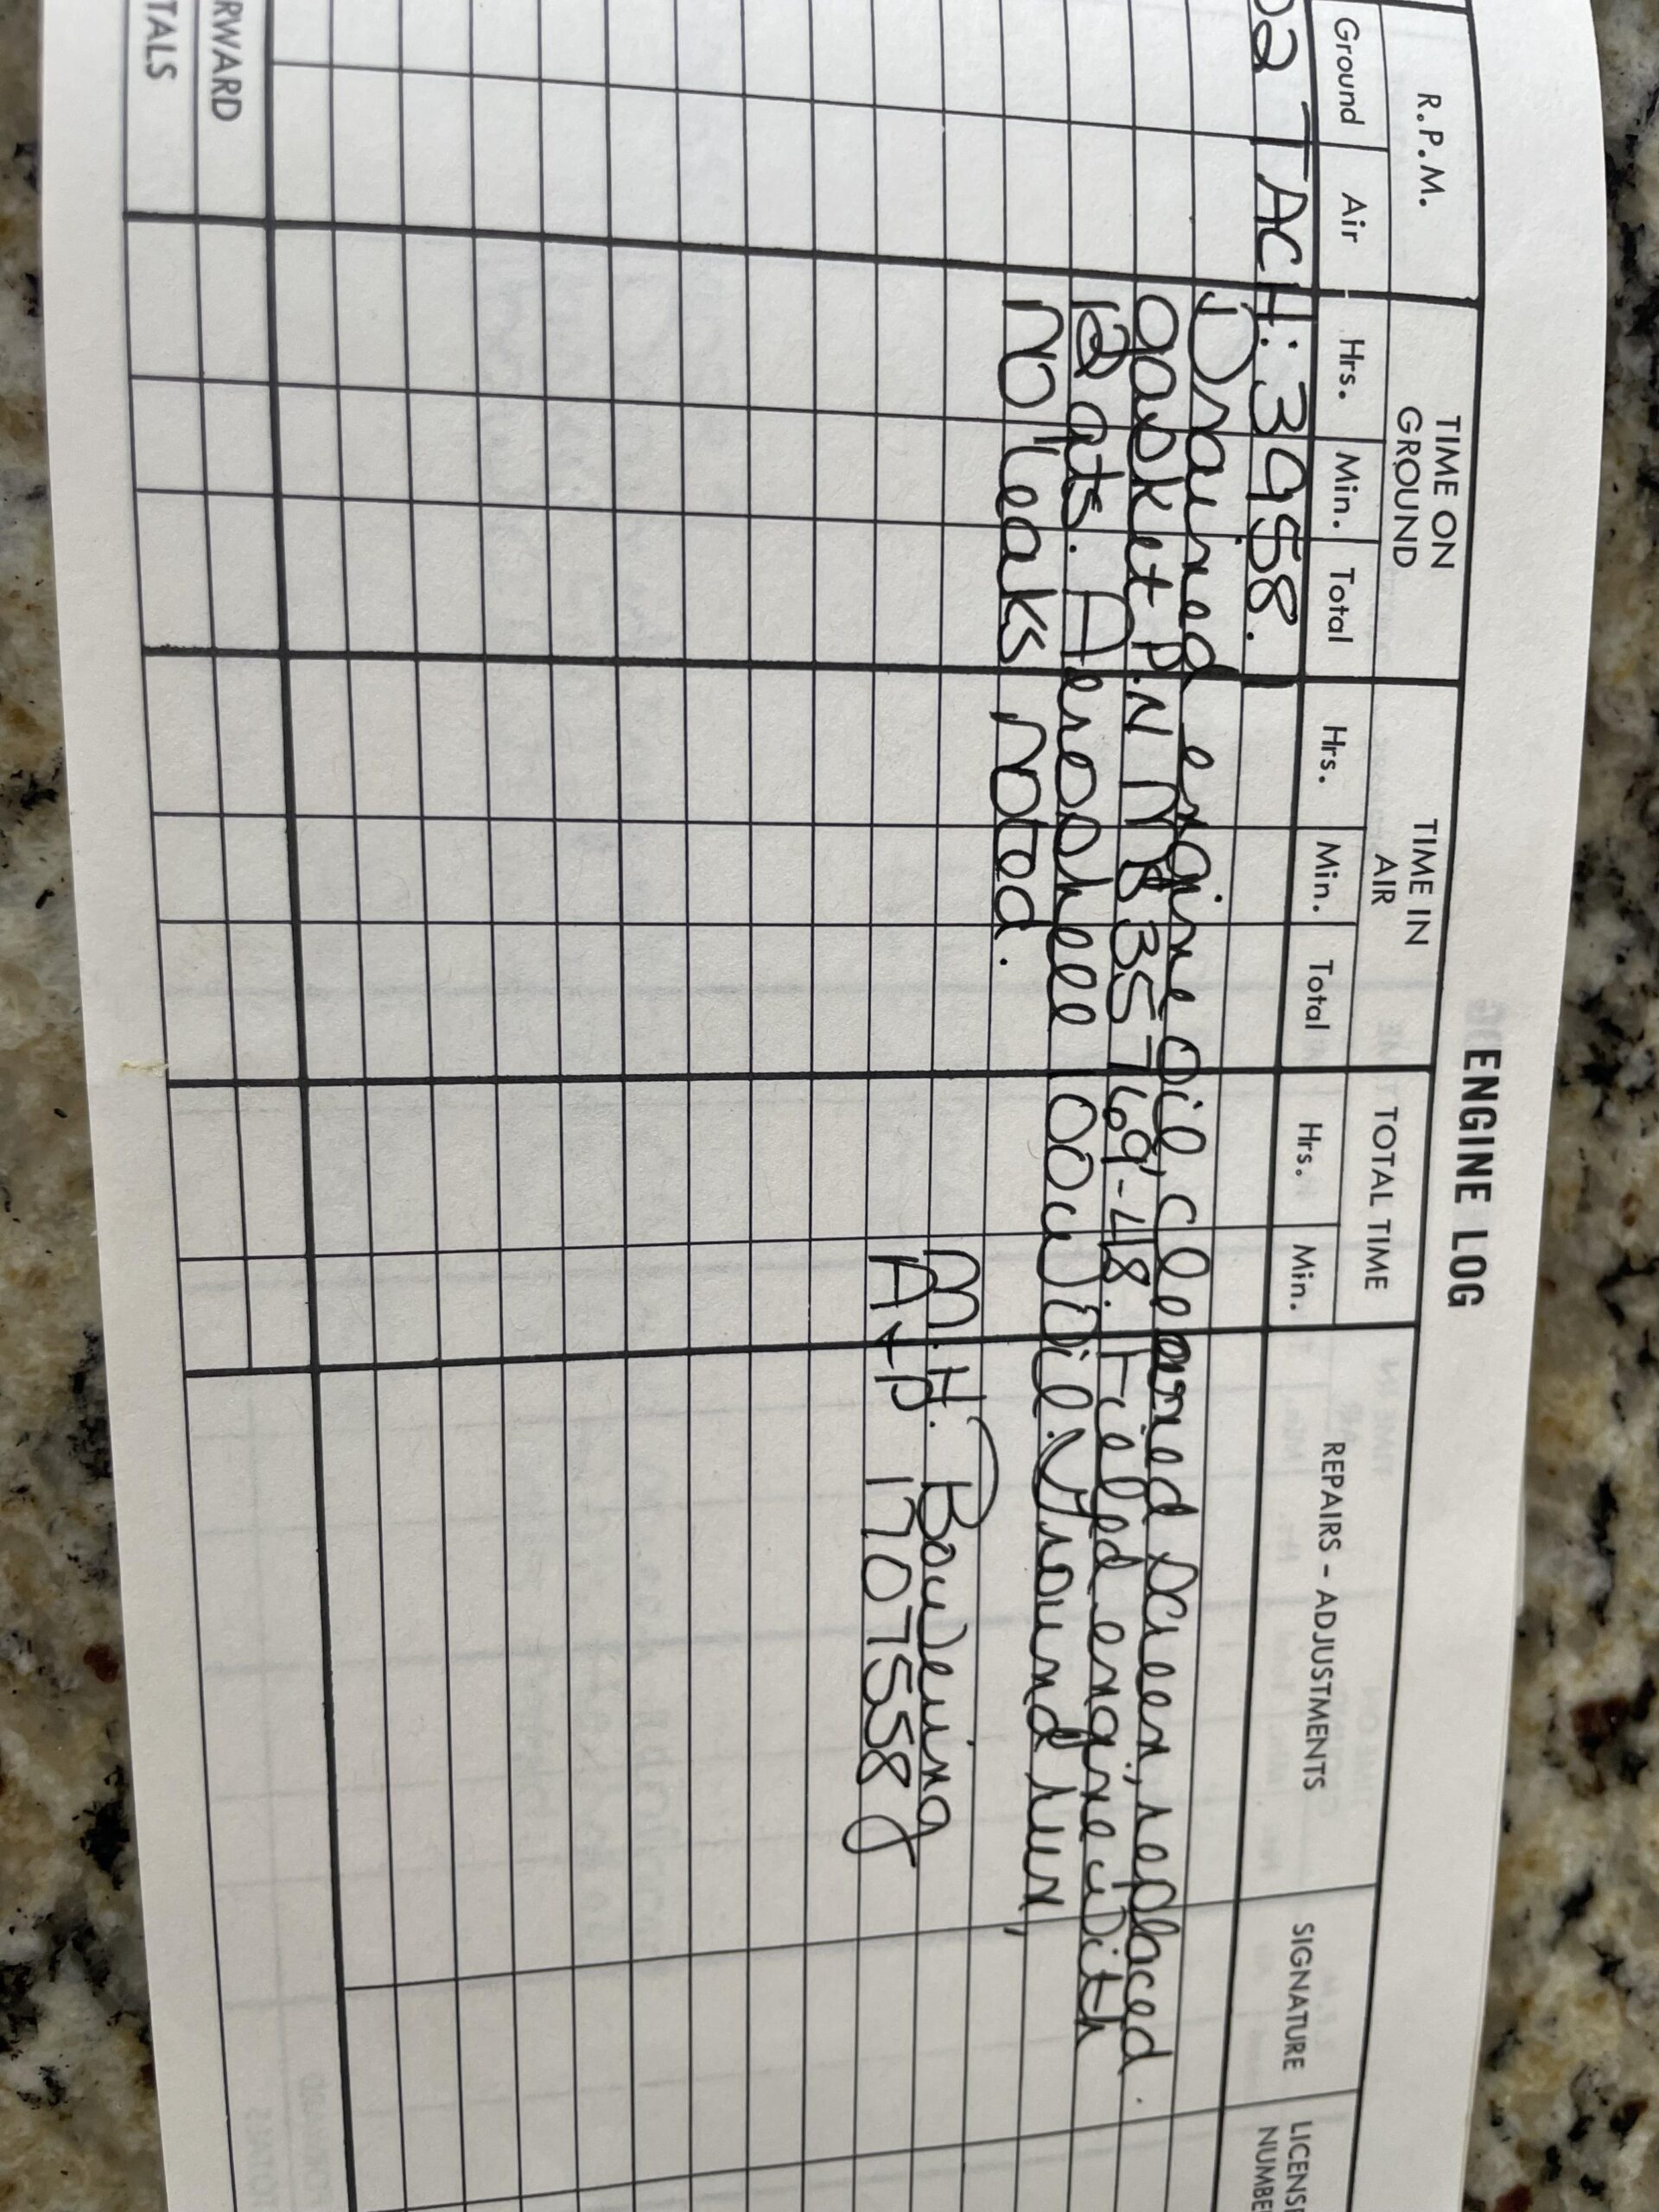 ENGINE LOG
R.P.M. TIME ON GROUND TIME IN AIR TOTAL TIME REPAIRS - ADJUSTMENTS SIGNATURE LICENSE NUMBE
Ground Air Hrs. Min. Total Hrs. Min. Total Hrs. Min.
02 TACH: 3958.
Drained engine oil, cleaned screen, replaced
gasket P.N MS 35769-48. Filled engine with
12 qts. Aeroshell 100w Oil. Ground run,
no leaks noted.
M.H. Bowening
A+P 1707558
RWARD
TALS